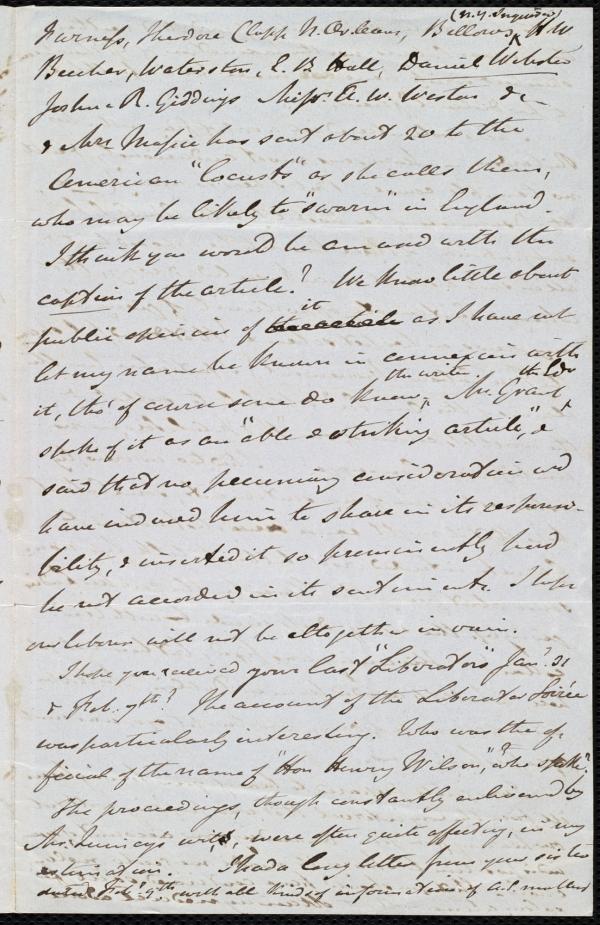 (N.Y. Inquirer)
Furness, Theodore Clapp N. Orleans, Bellows, H. W
Beecher, Waterston, E. B Hall, Daniel Webster
Joshua R. Giddings Miss A. W. Weston &c—
& Mrs Massie has sent about 20 to the
American "locusts" as she calls them,
who may be likely to "swarm" in England.
I think you would be amused with the
caption of the article? We know little about
it
public opinion of the article as I have not
let my name be known in connexion with
the writer. the Edr
it, tho' of course some do know, Mr. Grant,
spoke of it as an "able & striking article", &
said that no pecuniary consideration wd
have induced him to share in its responsi-
bility, & inserted it so prominently had
he not accorded in its sentiments. I hope
our labour will not be altogether in vain.
I hope you received your last "Liberators" Jany. 31
& Feb. 7th? The account of the Liberator Soirée
was particularly interesting. Who was the of-
ficial of the name of "Hon Henry Wilson", who spoke?
The proceedings, though constantly enlivened by
Mr. Quincy's wit, were often quite affecting, in my
estimation. I had a long letter from your sister
dated Feb. 9th, with all kinds of information of a.s. matters